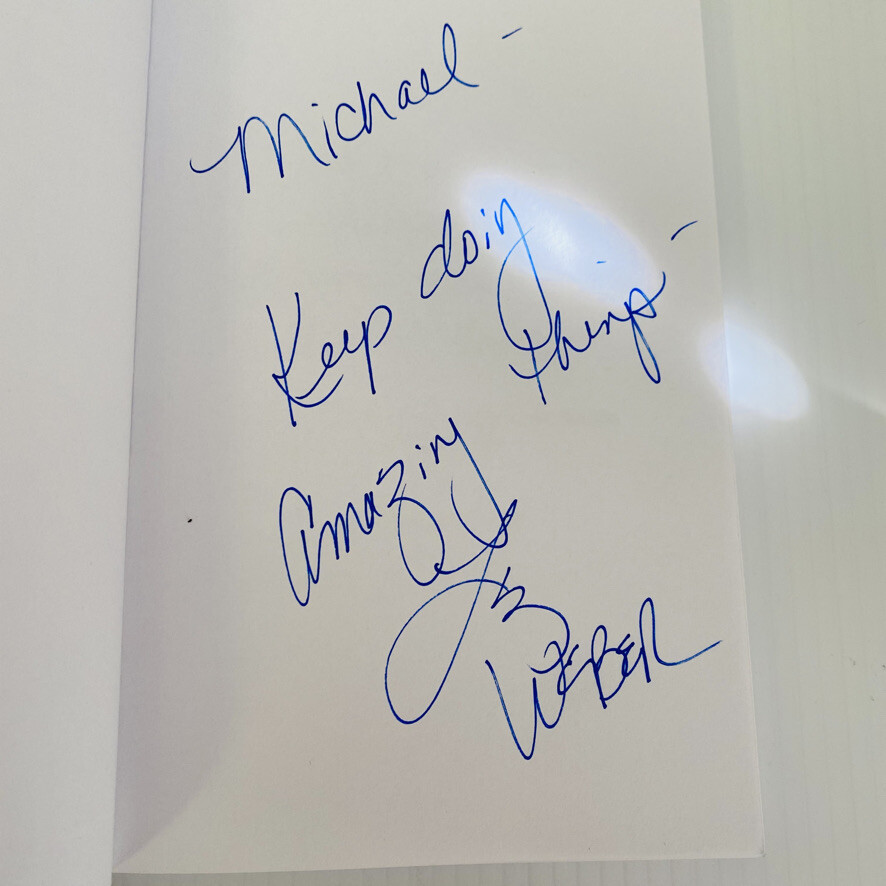 Michael -
Keep doing
amazing things -
WEBER